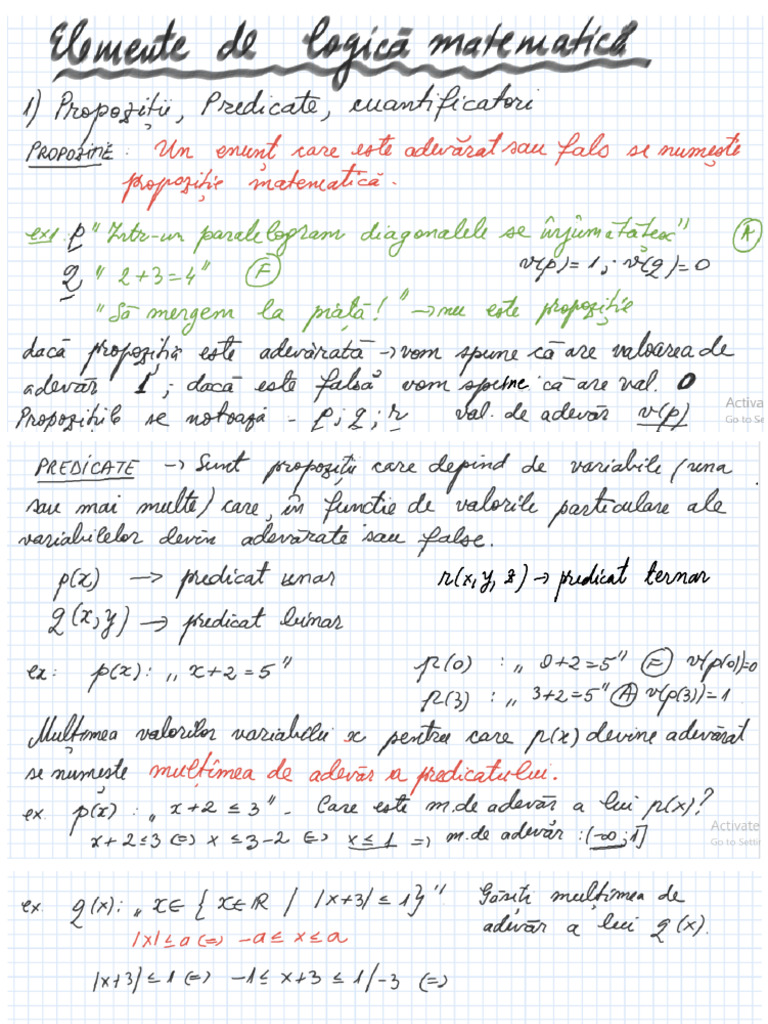 Elemente de logică matematică
1) Propoziții, Predicate, cuantificatori
PROPOZIȚIE : Un enunț care este adevărat sau fals se numește
propoziție matematică.
ex1 p "Într-un paralelogram diagonalele se înjumătățesc" (A)
q "2+3=4" (F) v(p)=1 ; v(q)=0
"Să mergem la piață!" → nu este propoziție
dacă propoziția este adevărată → vom spune că are valoarea de
adevăr 1 ; dacă este falsă vom spune că are val. 0
Propozițiile se notează - p; q; r val. de adevăr v(p)
Activa
Go to Se
PREDICATE → Sunt propoziții care depind de variabile (una
sau mai multe) care, în funcție de valorile particulare ale
variabilelor devin adevărate sau false.
p(x) → predicat unar r(x,y,z) → predicat ternar
q(x,y) → predicat binar
ex: p(x): „x+2=5" p(0) : „0+2=5" (F) v(p(0))=0
p(3) : „3+2=5" (A) v(p(3))=1
Mulțimea valorilor variabilei x pentru care p(x) devine adevărat
se numește mulțimea de adevăr a predicatului.
ex. p(x) : „x+2 ≤ 3". Care este m.de adevăr a lui p(x)?
x+2 ≤ 3 (=) x ≤ 3-2 (=) x ≤ 1 => m.de adevăr :(-∞;1]
Activate
Go to Settin
ex. q(x): „x∈ { x∈ℝ / |x+3| ≤ 1}" Găsiți mulțimea de
adevăr a lui q(x).
|x| ≤ a (=) -a ≤ x ≤ a
|x+3| ≤ 1 (=) -1 ≤ x+3 ≤ 1 /-3 (=)